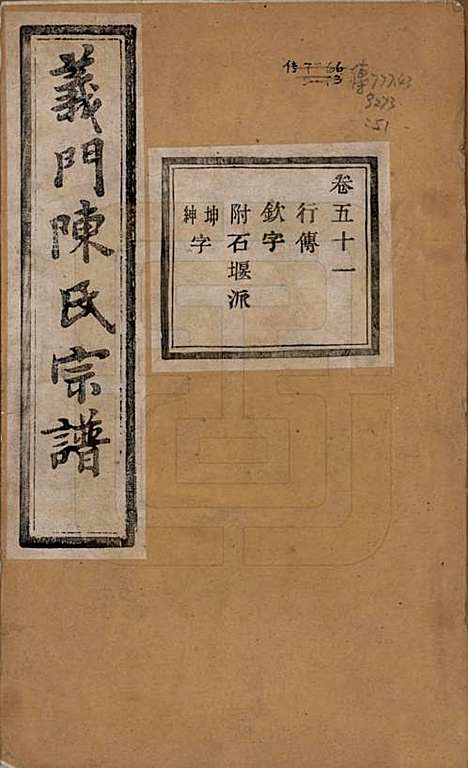 義門陳氏宗譜
卷五十一
行傳
欽字
附石堰派
坤紳字
傳777.43
9273
:51